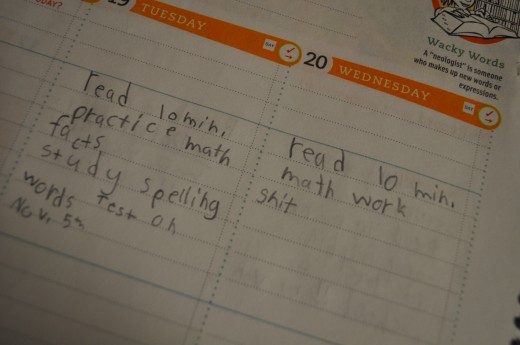 19 TUESDAY
read 10 min.
practice math
facts
study spelling
words test on
Nov. 5th
20 WEDNESDAY
read 10 min.
math work
shit
Wacky Words
A "neologist" is someone
who makes up new words or
expressions.